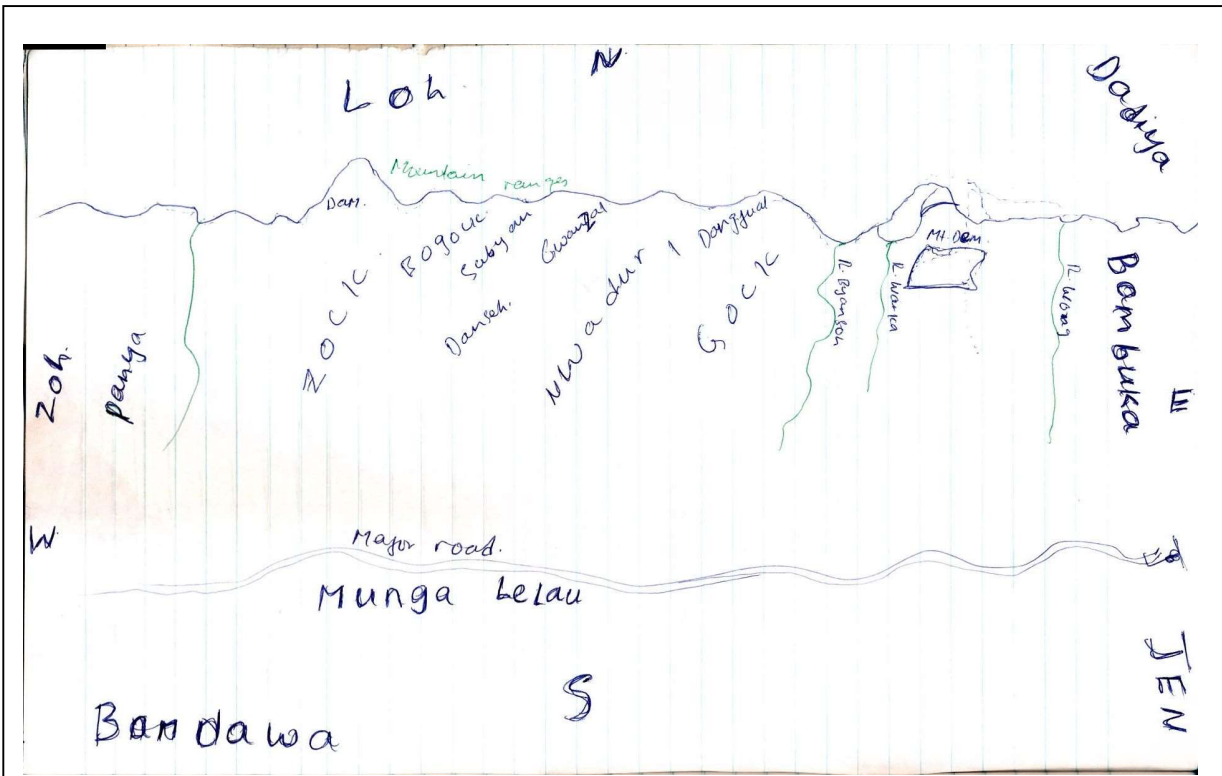 N.
Loh.
Dadiya
Mountain ranges
Dam.
ZOCIC
BOgouk.
Sabyan
Gwanzal
Danseh.
NWadur 1
Dangjual
GOCIC
R. Byanson
R. Wanka
Mt. Dem.
R. Worag
Bambuka
E
Zoh.
Panya
W.
Major road.
Munga LeLau
S
JEN
Bandawa